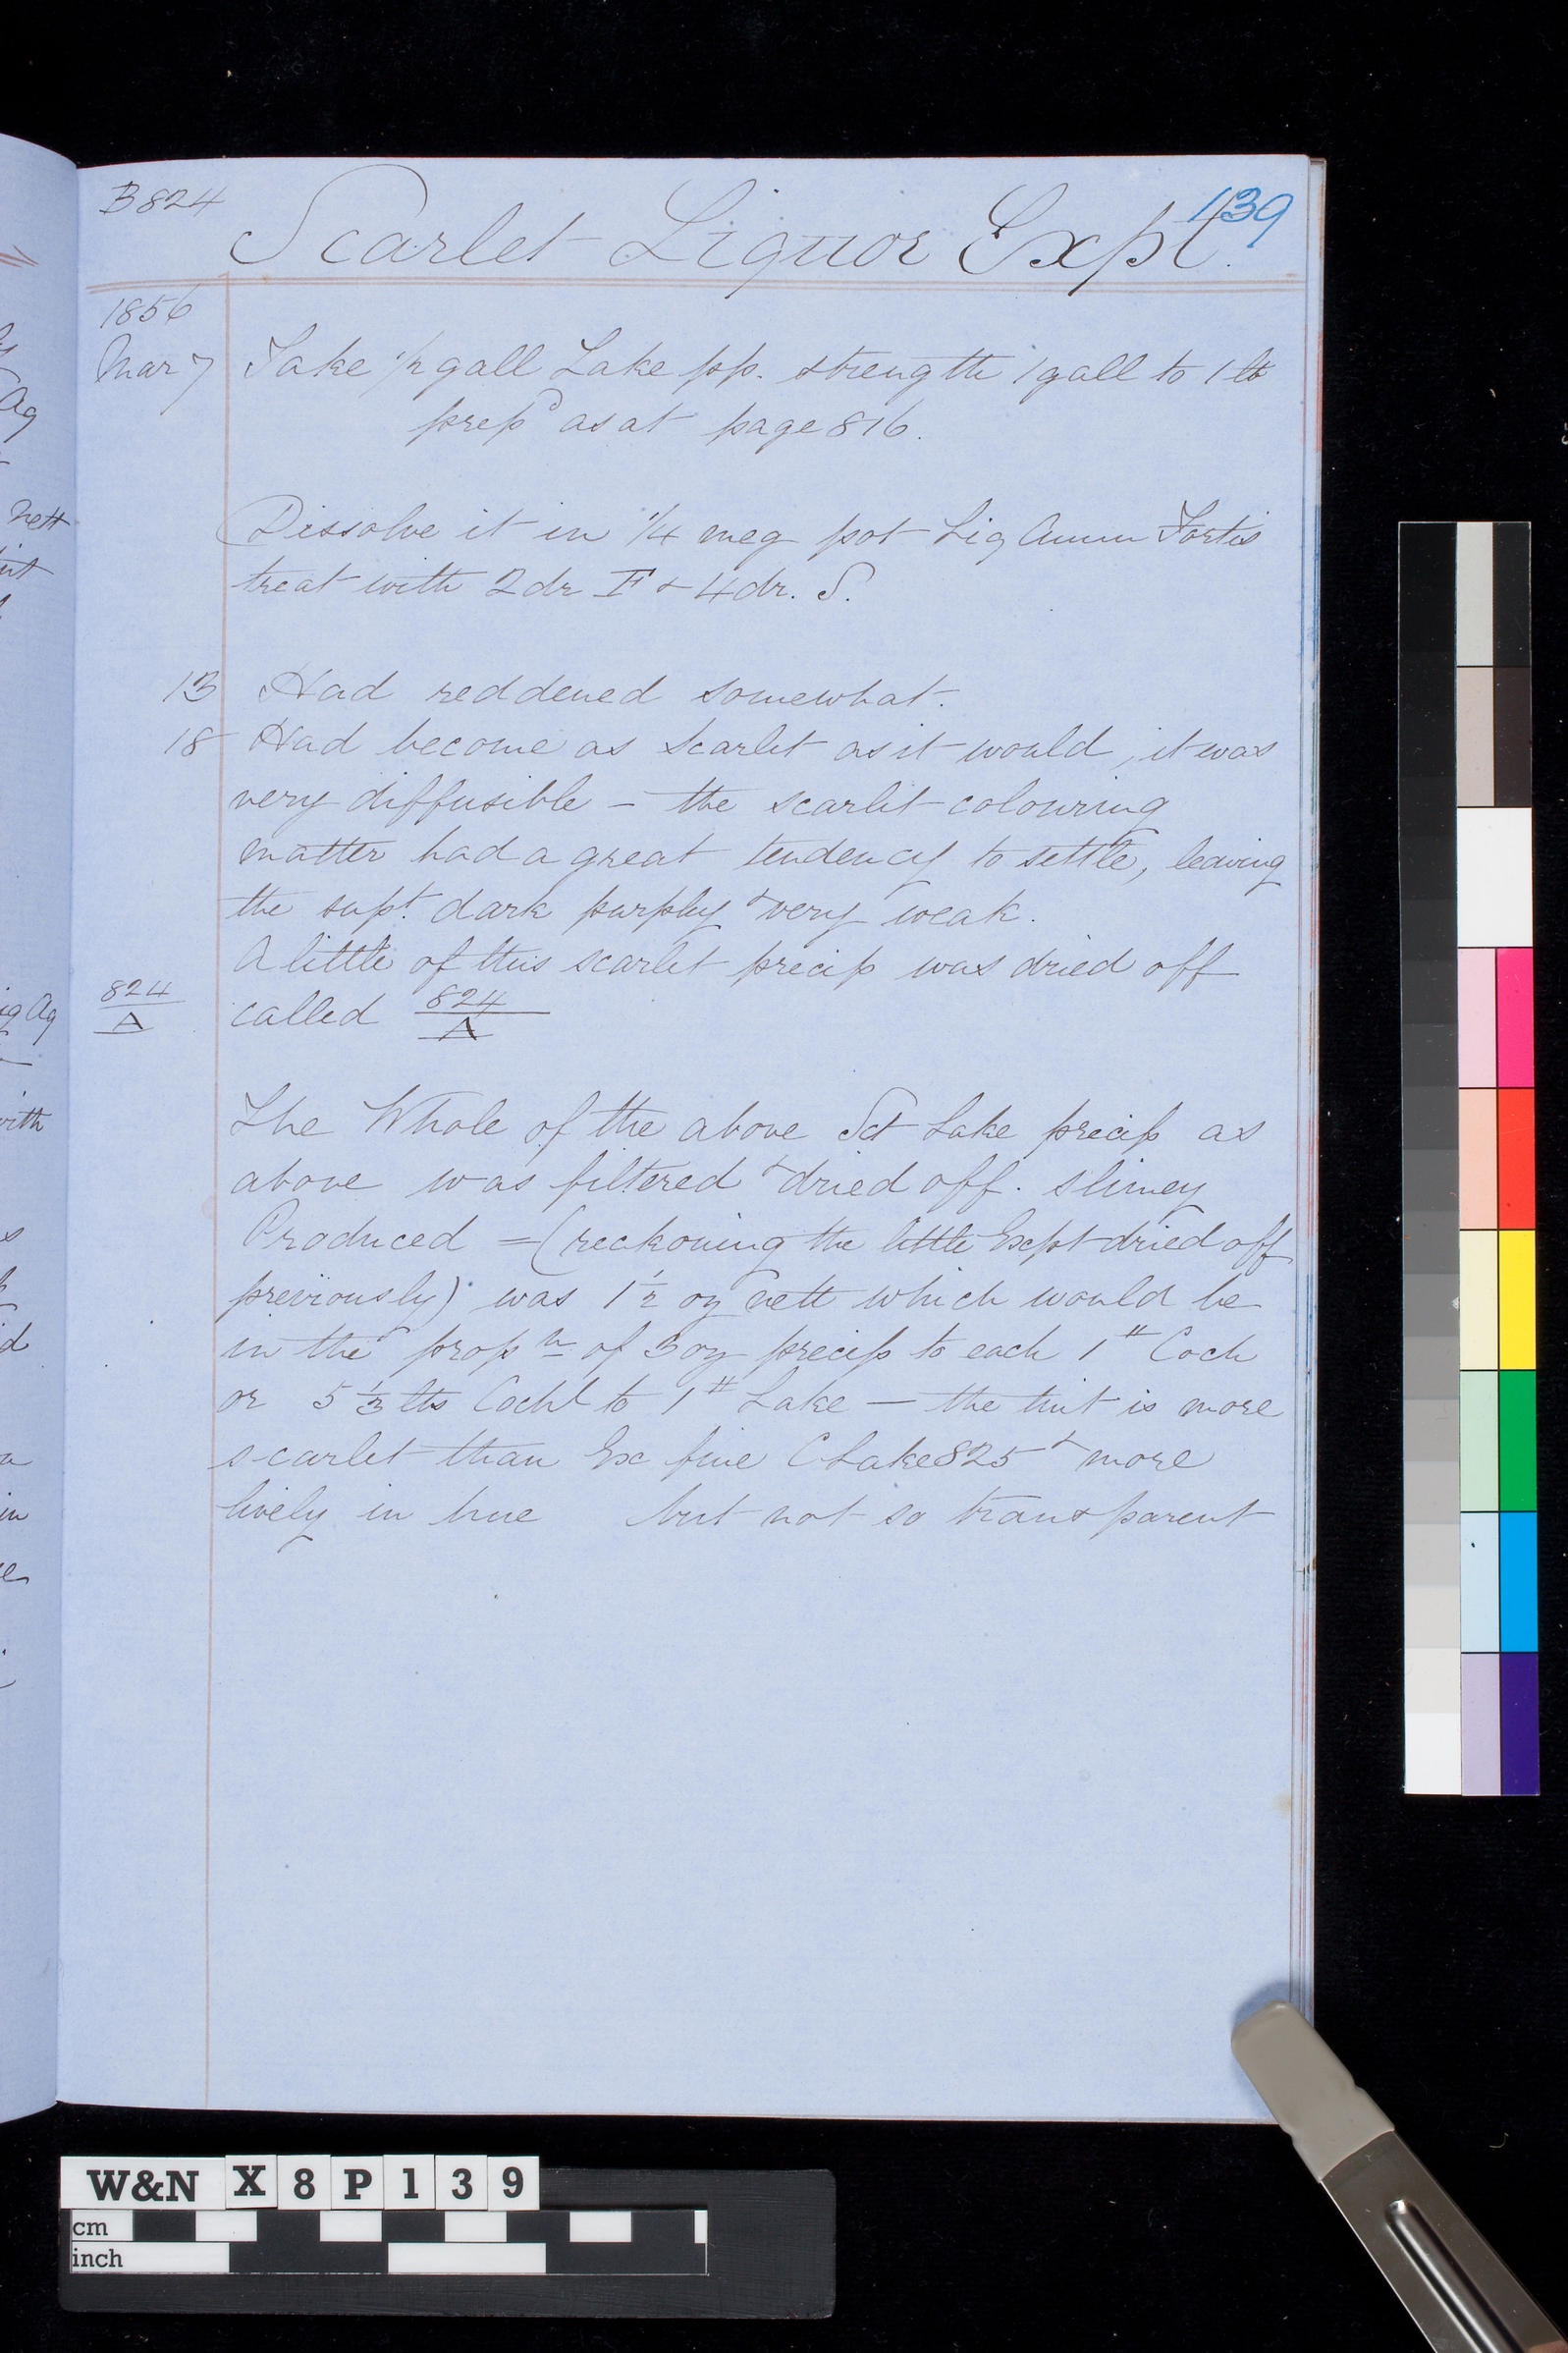 B824
139
Scarlet Liquor Expt.
1856
Mar 7 Take 1/2 gall Lake pp. strength 1 gall to 1 lb
prepd as at page 816.
Dissolve it in 1/4 meg pot Liq Amm Fortis
treat with 2 dr F & 4 dr. S.
13 Had reddened somewhat.
18 Had become as scarlet as it would, it was
very diffusible – the scarlet colouring
matter had a great tendency to settle, leaving
the supt. dark purply & very weak.
A little of this scarlet precip was dried off
824/A called 824/A
The Whole of the above Sct Lake precip as
above was filtered & dried off. slimey
Produced = (reckoning the little Expt dried off
previously) was 1 1/2 oz nett which would be
in the propn of 3 oz precip to each 1# Coch
or 5 1/3 lbs Cochl to 1# Lake — the tint is more
scarlet than Ex fine C Lake 825 & more
lively in hue but not so transparent
nett
Aq
with
W&N X 8 P 1 3 9
cm
inch